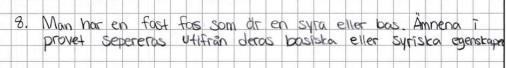 8. Man har en fast fas som är en syra eller bas. Ämnena i
provet sepereras utifrån deras basiska eller syriska egenskape